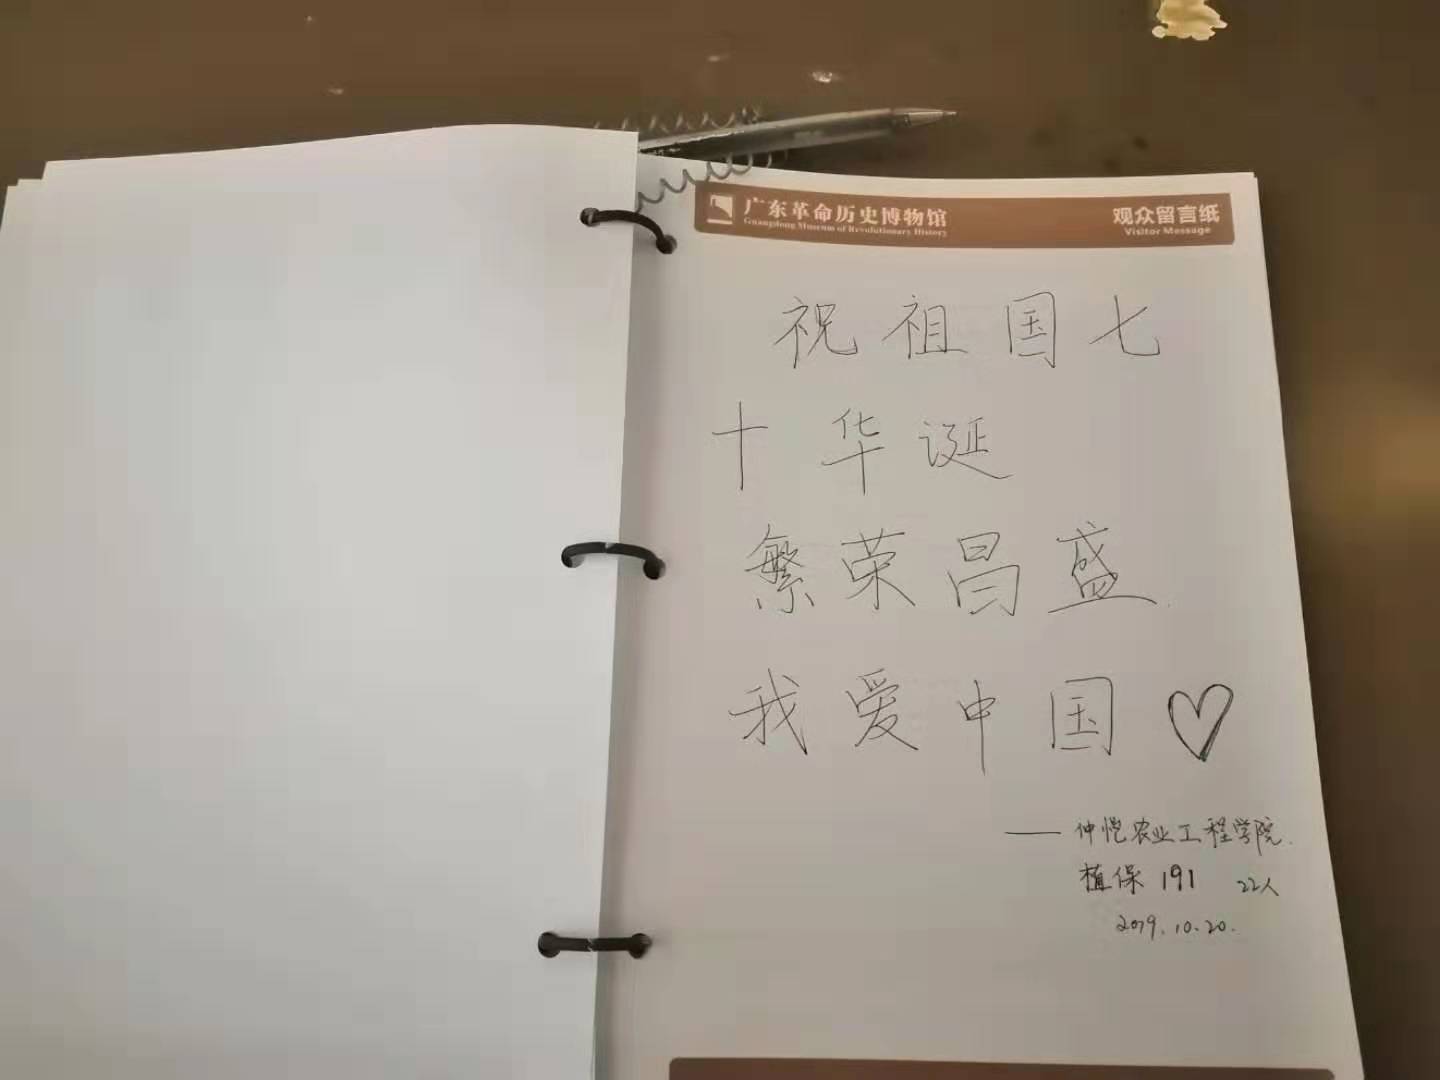 广东革命历史博物馆
Guangdong Museum of Revolutionary History
观众留言纸
Visitor Message
祝祖国七
十华诞
繁荣昌盛
我爱中国
——仲恺农业工程学院.
植保 191 22人
2019.10.20.